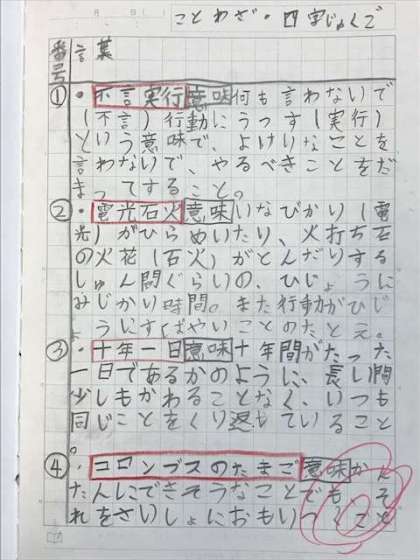 ことわざ・四字じゅくご
番号 言葉
① ・不言実行 意味 何も言わないで
(不言)行動にうつす(実行)
という意味で、よけいなことを
言わないで、やるべきことをだ
まってすること。
② ・電光石火 意味 いなびかり(電
光)がひらめいたり、火打ち石
の火花(石火)がとんだりする
しゅん間ぐらいの、ひじょうに
みじかい時間。また行動がひじ
ょうにすばやいことのたとえ。
③ ・十年一日 意味 十年間がたった
一日であるかのように、長い間
少しもかわることなく、いつも
同じことをくり返していること
。
④ ・コロンブスのたまご 意味 かん
たんにできそうなことでも、そ
れをさいしょにおもいつくこと